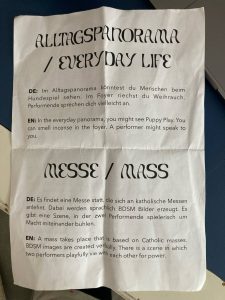 ALLTAGSPANORAMA
/ EVERYDAY LIFE
DE: Im Alltagspanorama könntest du Menschen beim
Hundespiel sehen. Im Foyer riechst du Weihrauch.
Performende sprechen dich vielleicht an.
EN: In the everyday panorama, you might see Puppy Play. You
can smell incense in the foyer. A performer might speak to
you.
MESSE / MASS
DE: Es findet eine Messe statt, die sich an katholische Messen
anlehnt. Dabei werden sprachlich BDSM Bilder erzeugt. Es
gibt eine Szene, in der zwei Performende spielerisch um
Macht miteinander buhlen.
EN: A mass takes place that is based on Catholic masses.
BDSM images are created verbally. There is a scene in which
two performers playfully vie with each other for power.